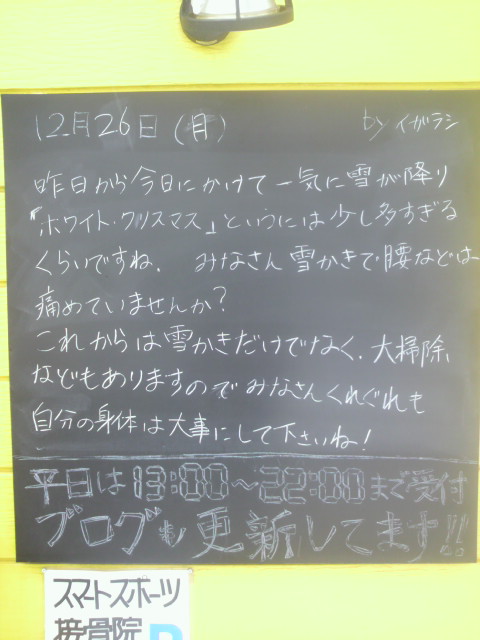 12月26日(月) by イガラシ
昨日から今日にかけて一気に雪が降り
『ホワイト・クリスマス』というには少し多すぎる
くらいですね. みなさん雪かきで腰などは
痛めていませんか?
これからは雪かきだけでなく、大掃除
などもありますのでみなさんくれぐれも
自分の身体は大事にして下さいね!
平日は13:00〜22:00まで受付
ブログも更新してます!!
スマートスポーツ
接骨院 P